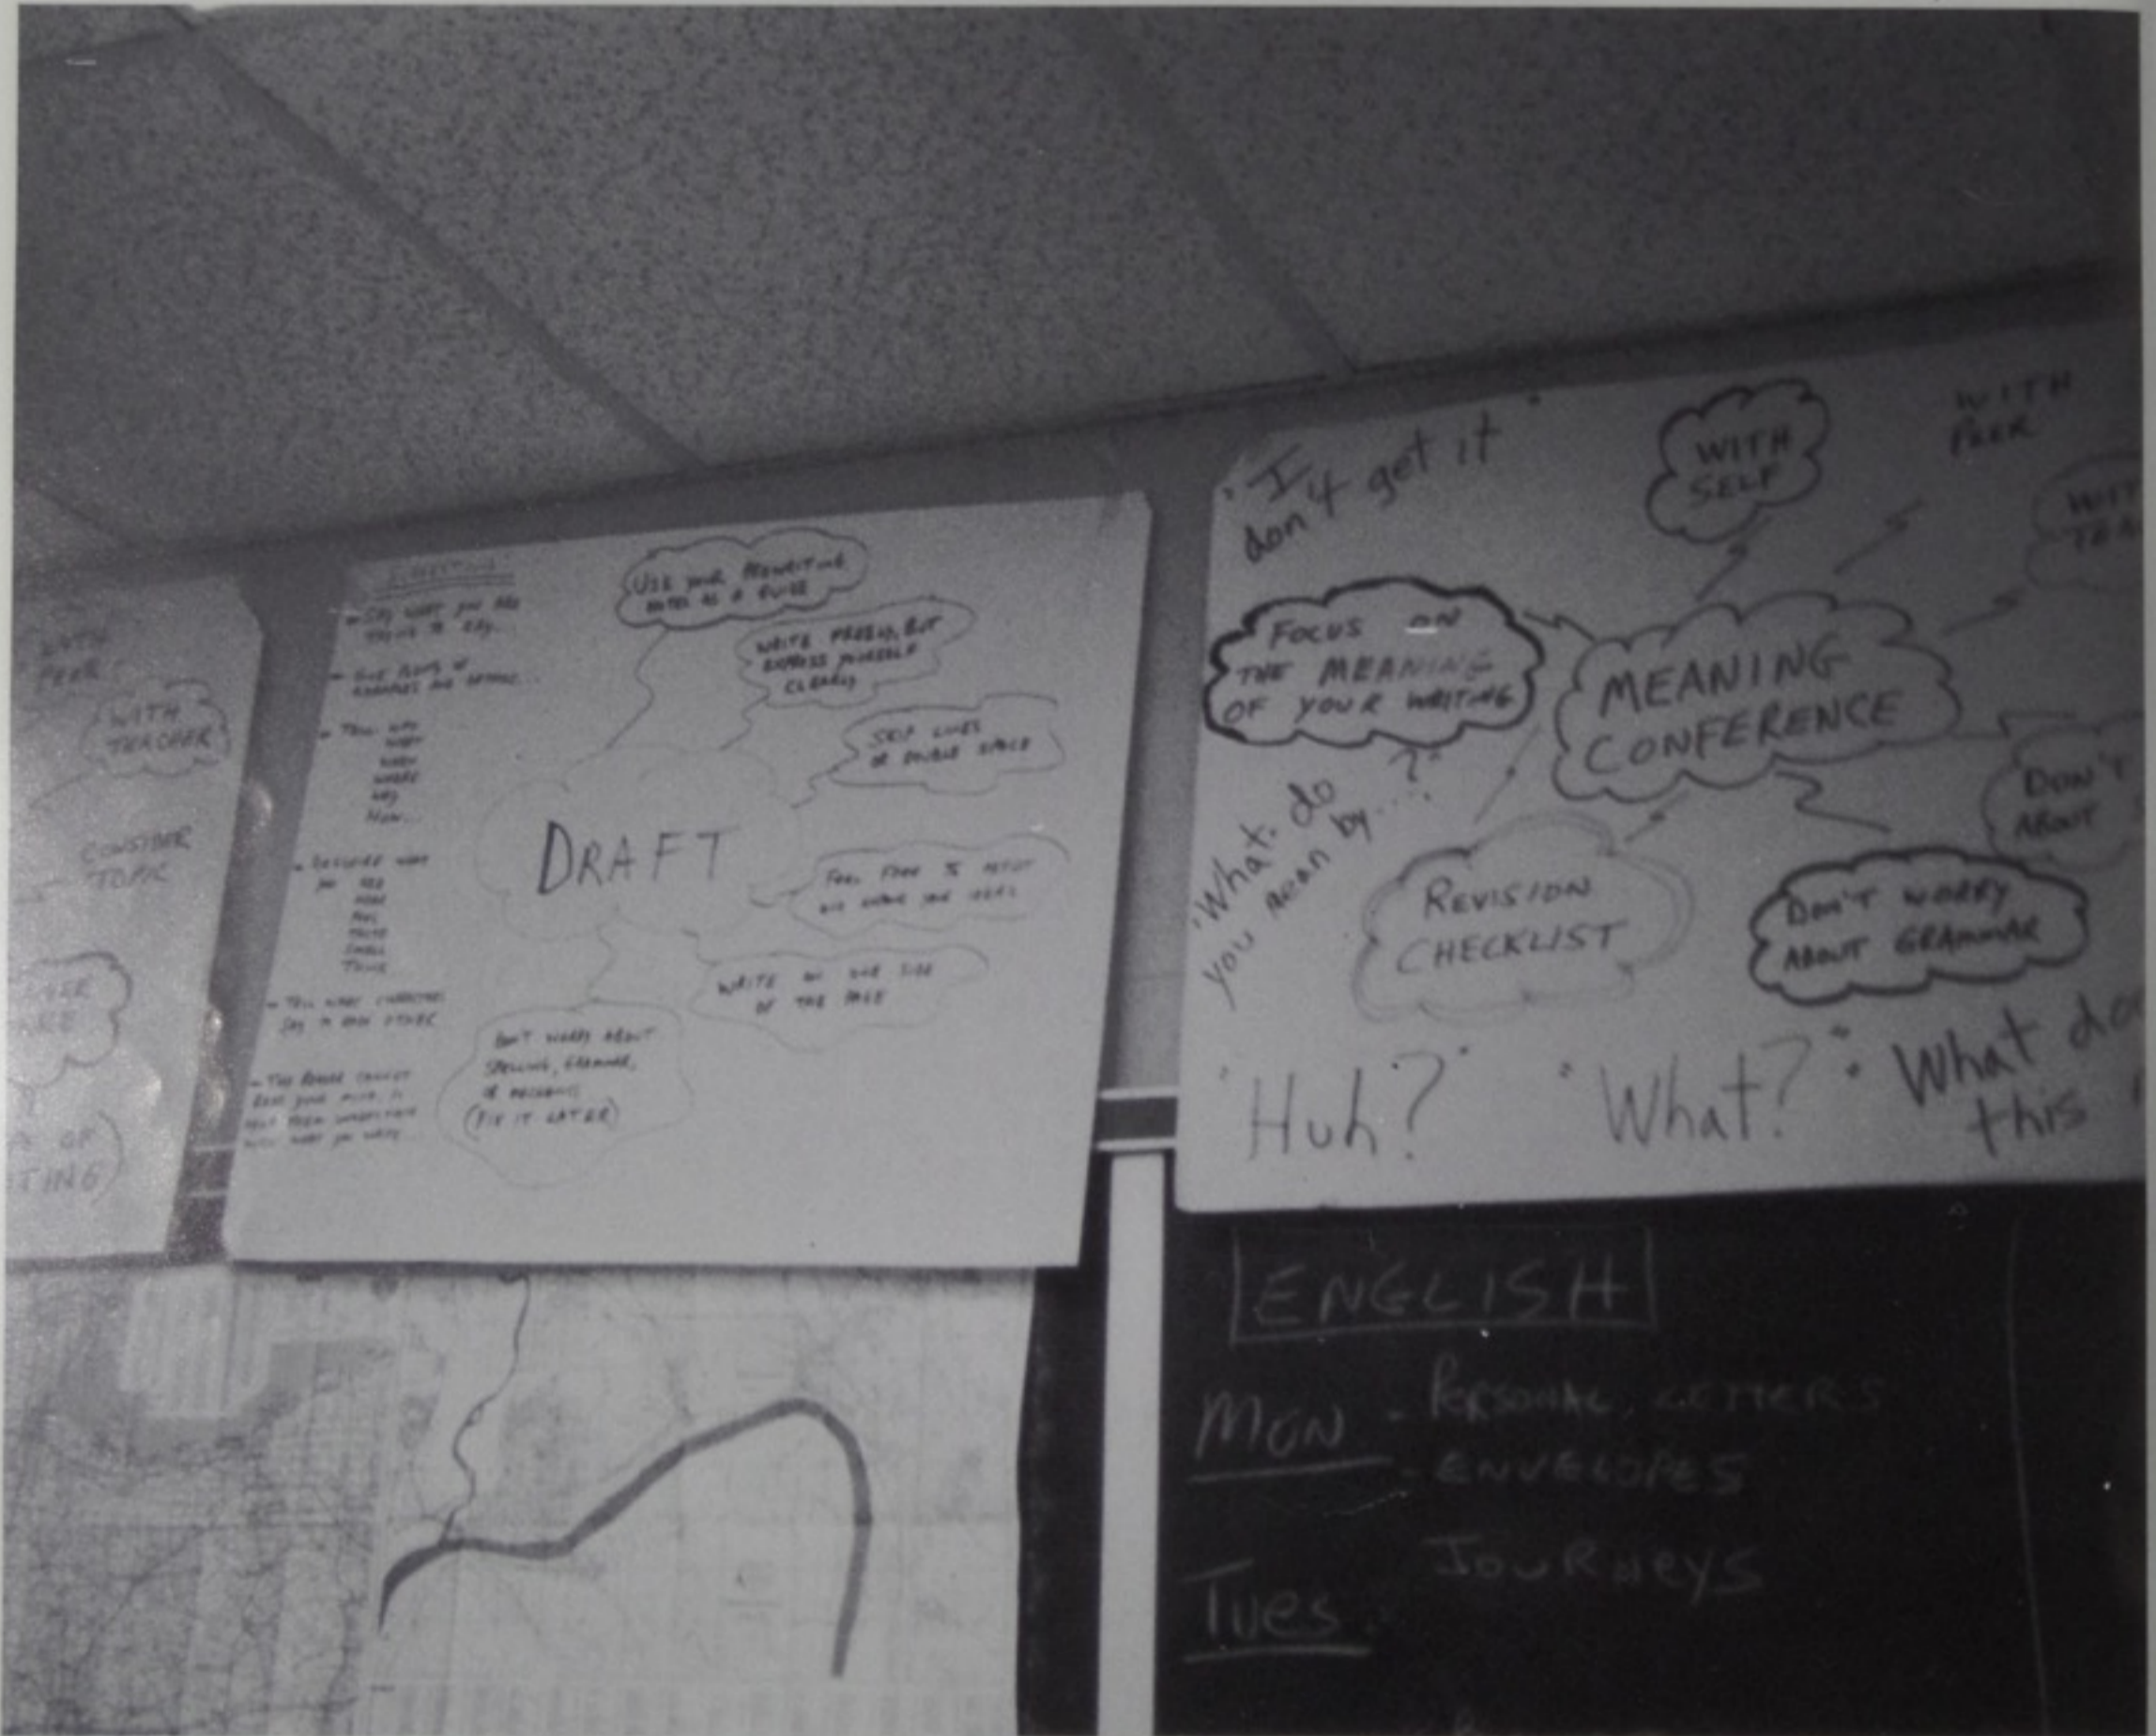 WITH
PEER
WITH
TEACHER
CONSIDER
TOPIC
OF
TING)
- SAY WHAT YOU ARE
TRYING TO SAY...
- TELL WHO
WHAT
WHEN
WHERE
WHY
HOW...
- DESCRIBE WHAT
YOU SEE
HEAR
FEEL
TASTE
SMELL
THINK
- TELL WHAT CHARACTERS
SAY TO EACH OTHER
- THE READER CANNOT
READ YOUR MIND
USE YOUR PREWRITING
NOTES AS A GUIDE
WRITE FREELY, BUT
EXPRESS YOURSELF
CLEARLY
SKIP LINES
OR DOUBLE SPACE
DRAFT
FEEL FREE TO
YOUR IDEAS
WRITE ON ONE SIDE
OF THE PAGE
DON'T WORRY ABOUT
SPELLING, GRAMMAR,
OR MECHANICS
(FIX IT LATER)
"I
don't get it"
WITH
SELF
WITH
PEER
WIT
TEA
FOCUS ON
THE MEANING
OF YOUR WRITING
MEANING
CONFERENCE
"What do
you mean by....?"
REVISION
CHECKLIST
DON'T
ABOUT
DON'T WORRY
ABOUT GRAMMAR
"Huh?" "What?" "What do
this
ENGLISH
MON - PERSONAL LETTERS
- ENVELOPES
Tues. JOURNEYS